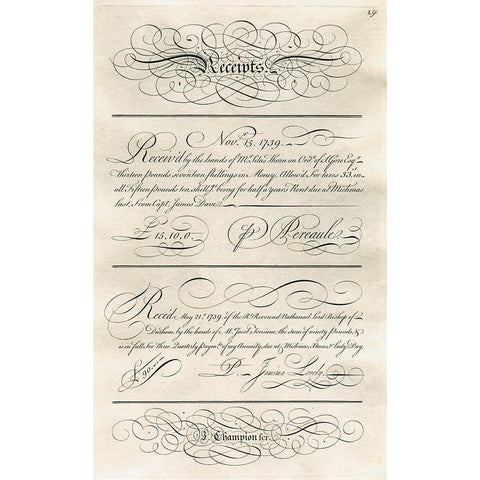 19
Receipts.
Nov.r 15. 1739
Receiv'd by the hands of Mr. Silas Thorn on Ord.r of Esq.r
Thirteen pounds seventeen shillings in Money. Allow'd for taxes 33.s in
all Fifteen pounds ten shill.s being for half a years Rent due at Mich'mas
last, From Capt. James Dave
£ 15.10.0. P Pereaule
Rec'ed May 21.st 1739, of the R.t Reverend Nathanael Lord Bishop of
Durham, by the hands of Mr. Jacob the sum of ninety Pounds, &
is in full for three Quarterly Paym.ts of my Annuity, due at Mich'mas, Xmas, & Lady Day,
£ 90 P. Jemma Lovely
J. Champion scr.